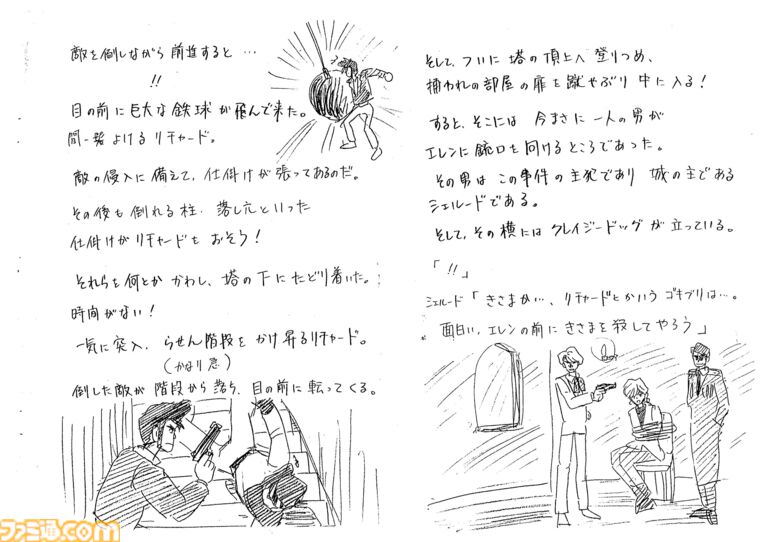 敵を倒しながら前進すると…
!!
目の前に巨大な鉄球が飛んで来た。
間一髪よけるリチャード。
敵の侵入に備えて、仕掛けが張ってあるのだ。
その後も倒れる柱、落し穴といった
仕掛けがリチャードをおそう!
それらを何とかかわし、塔の下にたどり着いた。
時間がない!
一気に突入、らせん階段をかけ昇るリチャード。
(かなり急)
倒した敵が階段から落ち、目の前に転ってくる。
そして、ついに塔の頂上へ登りつめ、
捕われの部屋の扉を蹴やぶり中に入る!
すると、そこには今まさに一人の男が
エレンに銃口を向けるところであった。
その男はこの事件の主犯であり城の主である
シェルードである。
そして、その横にはクレイジードッグが立っている。
「!!」
シェルード「きさまか…、リチャードとかいうゴキブリは…。
面白い、エレンの前にきさまを殺してやろう」
ファミ通.com